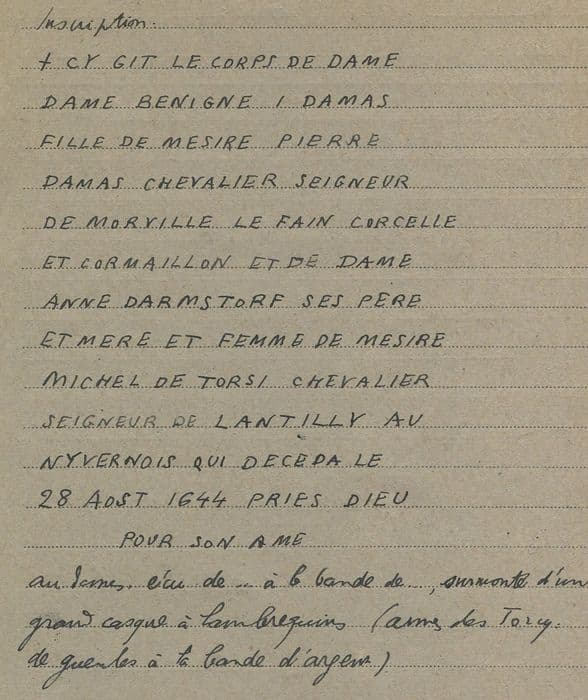 Inscription.
+ CY GIT LE CORPS DE DAME
DAME BENIGNE I DAMAS
FILLE DE MESIRE PIERRE
DAMAS CHEVALIER SEIGNEUR
DE MORVILLE LE FAIN CORCELLE
ET CORMAILLON ET DE DAME
ANNE DARMSTORF SES PÈRE
ET MERE ET FEMME DE MESIRE
MICHEL DE TORSI CHEVALIER
SEIGNEUR DE LANTILLY AU
NYVERNOIS QUI DECEDA LE
28 AOST 1644 PRIES DIEU
POUR SON AME
au écu de .. à la bande de .., surmonté d'un
grand casque à lambrequins (armes des Torcy.
de gueules à la bande d'argent)